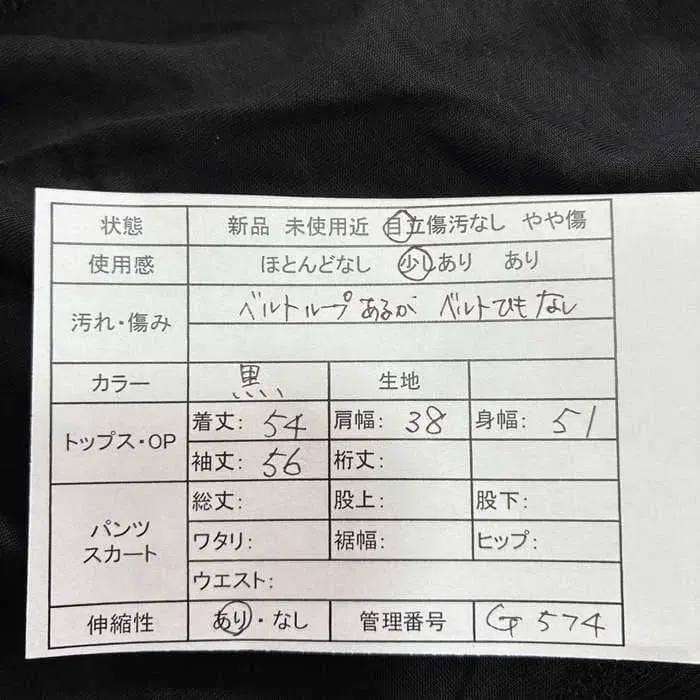 状態 新品 未使用近 目立傷汚なし やや傷
使用感 ほとんどなし 少しあり あり
汚れ・傷み ベルトループあるが ベルトひもなし
カラー 黒 生地
トップス・OP 着丈: 54 肩幅: 38 身幅: 51
袖丈: 56 裄丈:
パンツ スカート 総丈: 股上: 股下:
ワタリ: 裾幅: ヒップ:
ウエスト:
伸縮性 あり・なし 管理番号 G574